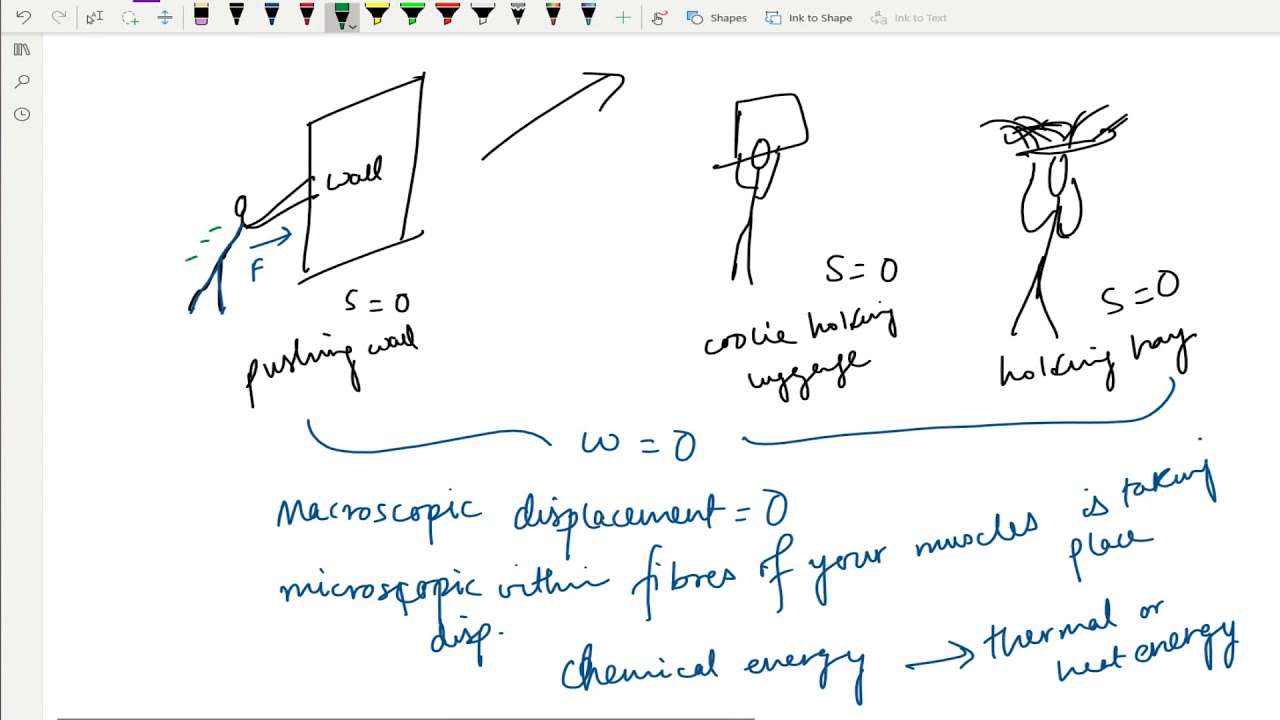 Shapes
Ink to Shape
Ink to Text
wall
F
S = 0
pushing wall
S = 0
coolie holking
luggage
S = 0
holking hay
W = 0
Macroscopic displacement = 0
microscopic within fibres of your muscles is taking
disp.
place
Chemical energy → thermal or
heat energy